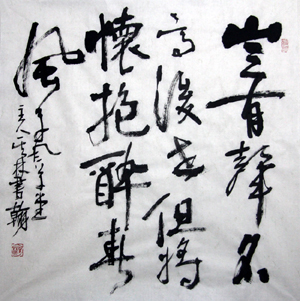 岂有声名
高后世但将
怀抱醉春
风
主人
书